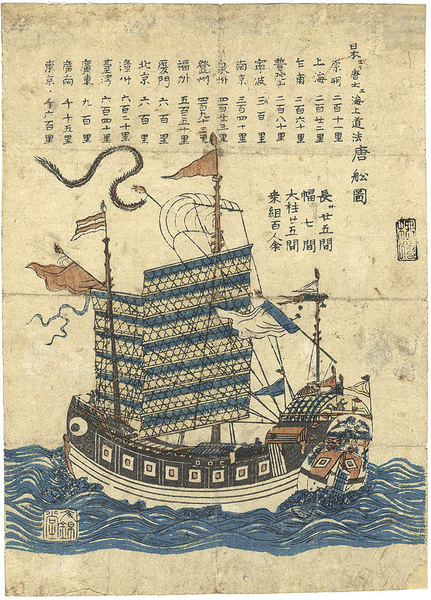 日本ヨリ唐土エ海上道法 唐舩圖
崇明 二百十里
上海 二百廿二里
乍甫 二百六里
普陀山 二百八十里
寧波 三百里
南京 三百四十里
泉州 四百廿三里
登州 四百九十三里
福州 五百五十里
厦門 六百里
北京 六百里
漳州 六百二十里
臺湾 六百四十里
廣東 九百里
廣南 千十五里
東京 千六百里
長サ廿五間
幅七間
大柱廿五間
乗組百人余
文錦堂